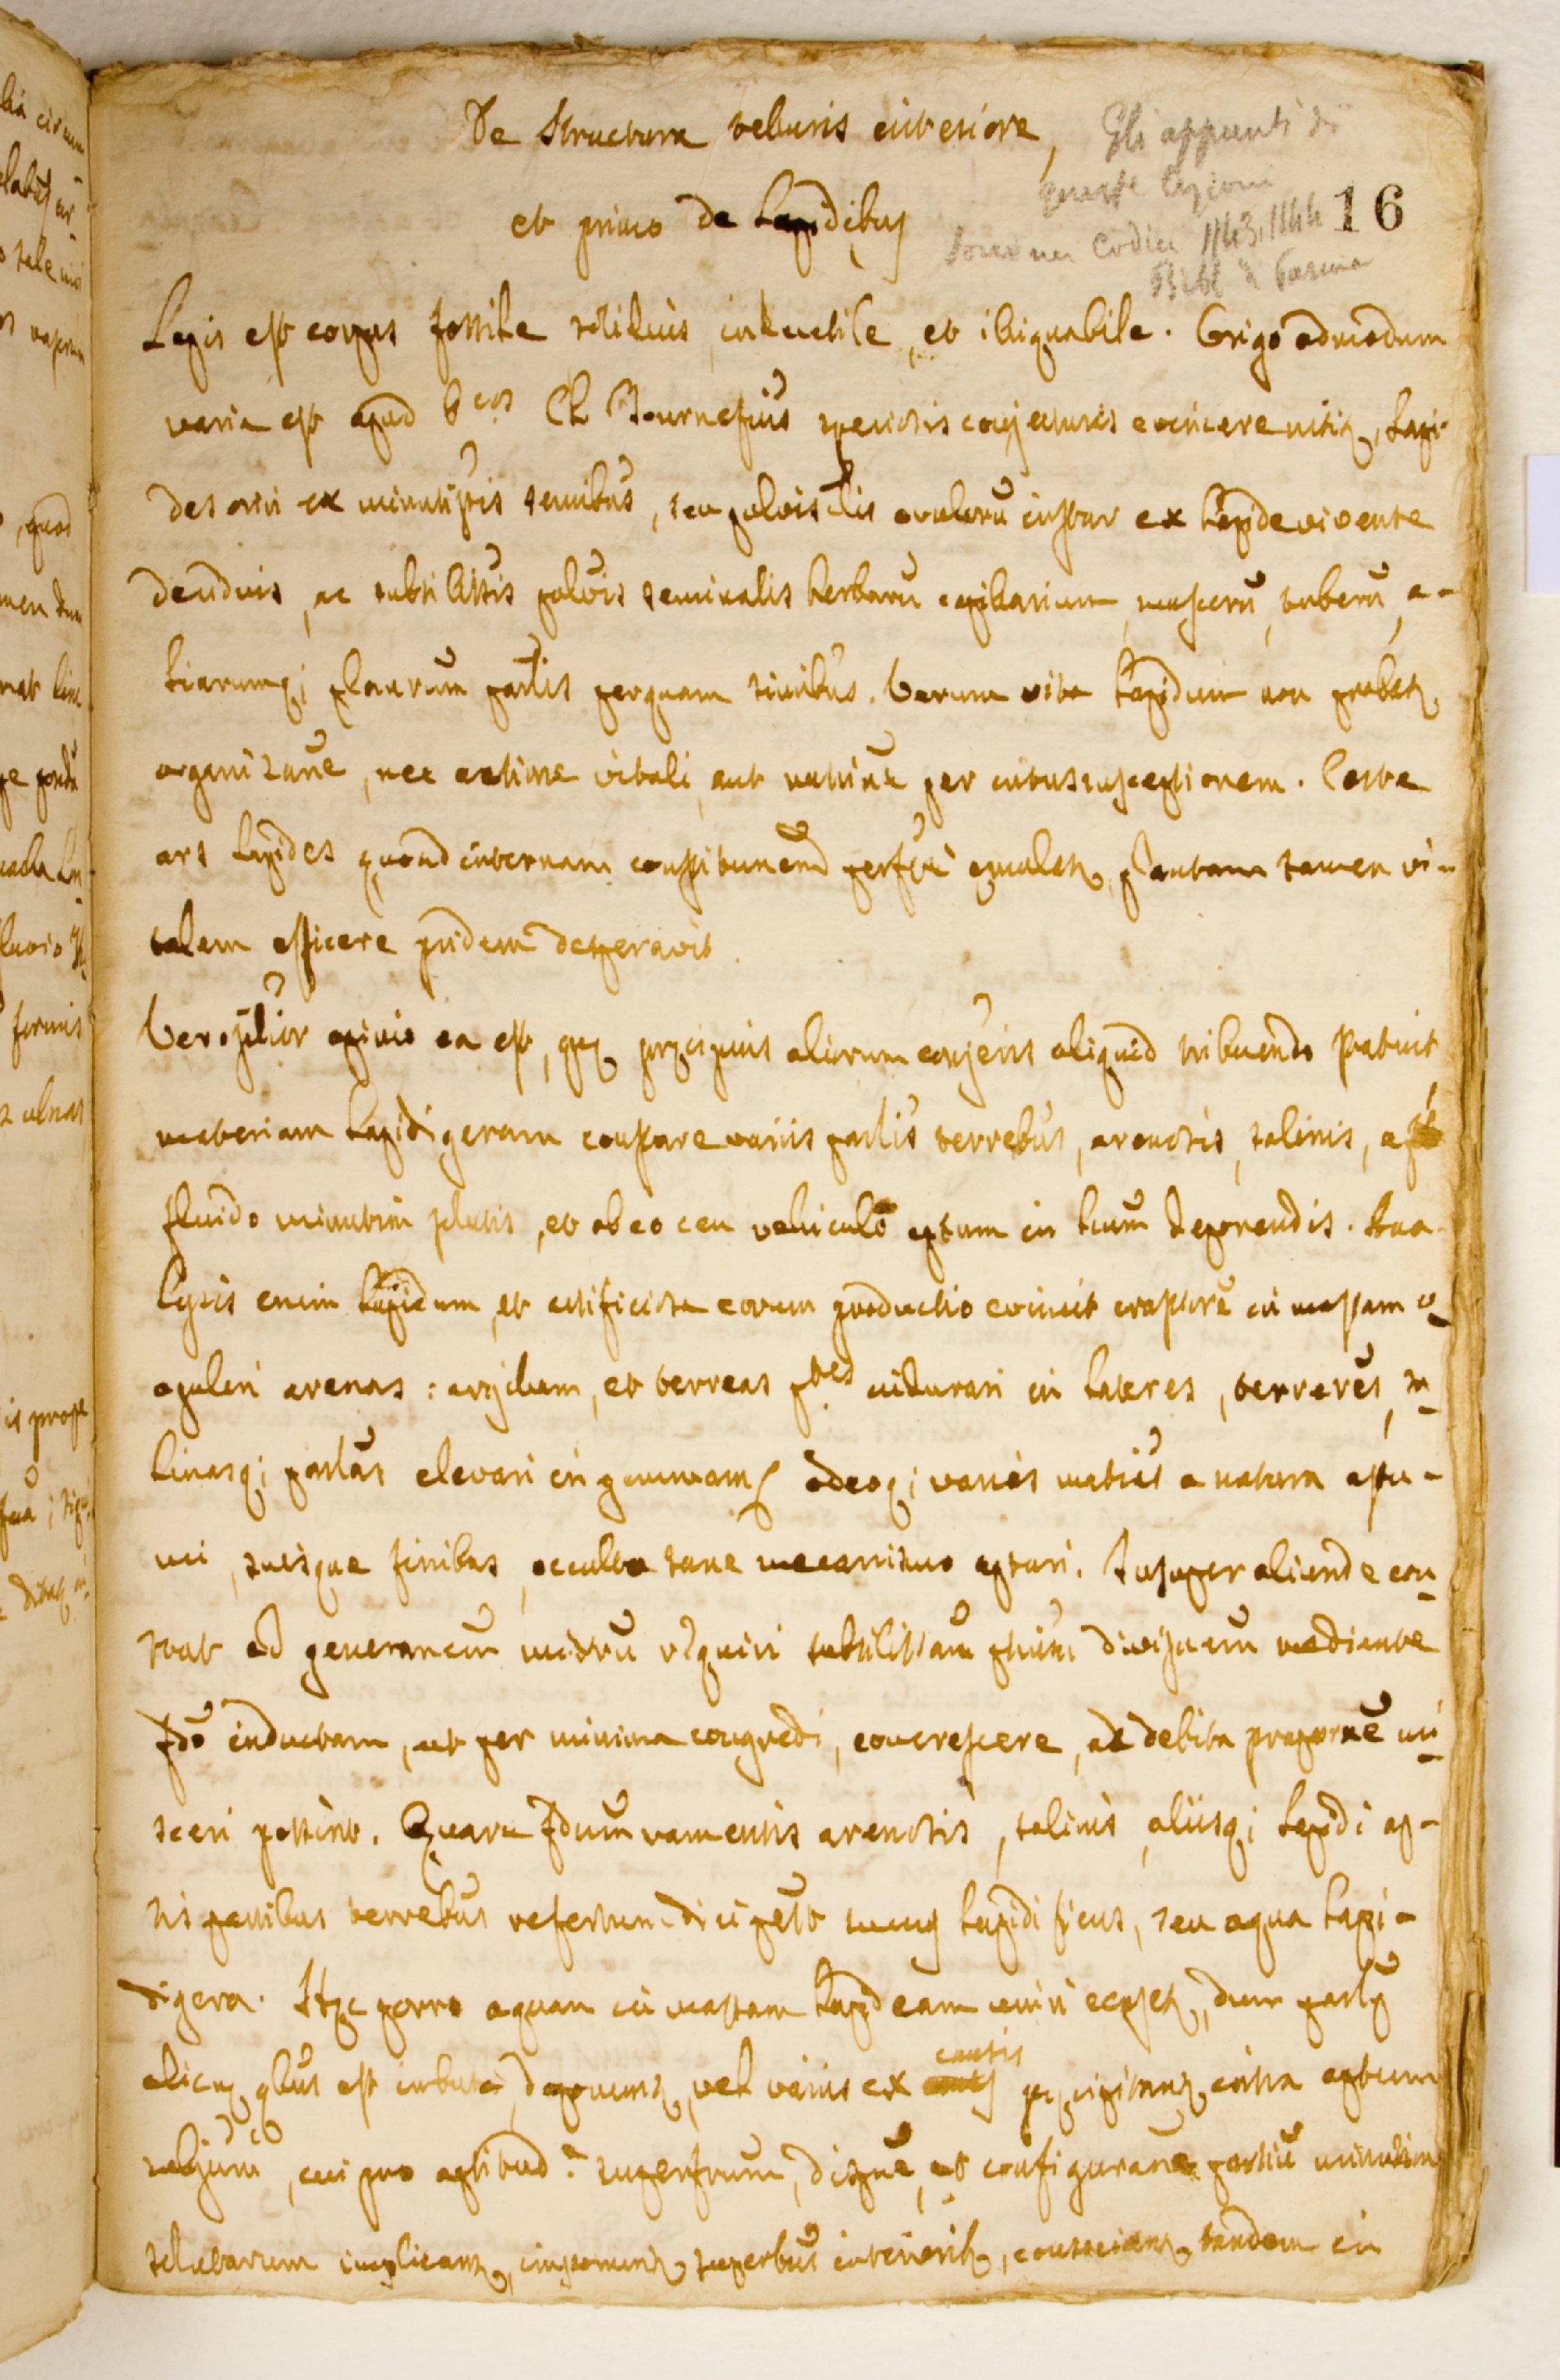 De Structura telluris interiore,
et primo de Lapidibus
Gli appunti di
queste lezioni
sono nei Codici 1143, 1144
Bibl. di Parma
16
Lapis est corpus fossile solidius, inductile, et iliquabile. Origo admodum
varia est apud Ch. Tournefius speciosis conjecturis evincere nititur, Lapi-
des oriri ex minutissis semibus, seu pulvisculis ovulorū instar ex Lapide vivente
deciduis, ac subtilissis pulvis seminalis herbarū capillarium, muscorū, tuberū, a-
liarumq; plantarum partis perquam similibus. Verum vita Lapidum non probatur
organizaone, nec actione vitali, aut nutrione per intussusceptionem. Certe
ars Lapides quoad internam constitutionem perfecte emulatur, plantam tamen vi-
talem efficere pridem desperavit.
Verosilior opinio ea est, quę pręcipuis aliorum conjeris aliquid tribuendo statuit
materiam Lapidigeram constare variis partis terrebus, arenosis, salinis, a
fluido minutim solutis, et ab eo ceu vehiculo aptum in locum deponendis. Ana-
lysis enim Lapidum, et artificiosa eorum productio evincit crassiorē in massam co-
aguliri arenas: argillam, et terreas ptes indurari in lateres, terrerēs, sa-
linasq; partas elevari in gemmam, adeoq; varias matrias a natura assu-
mi, suisque finibus, occulto sane mecanismo aptari. Insuper aliunde con-
stat ad generanem mixtorū requiri subtilissam ptium divisionem mediante
fdo inductam, ut per minima congredi, concrescere, ac debita proporne mi-
sceri possint. Quare fdum ramentis arenosis, salinis, aliisq; Lapidi ap-
tis partibus terrebus refertum dici potest succus Lapidificus, seu aqua Lapi-
digera. Hęc porro aquam in massam Lapideam uniri
alicuj quibus est imbuta, deponuntur, vel verius ex cautis pręcipitantur intra aptum
subjum, cui pro aptitud.e superfrum, disone, et configurane partiū minutim
solutarum implicantur, imponuntur superbus interiorib, consociantur tandem in